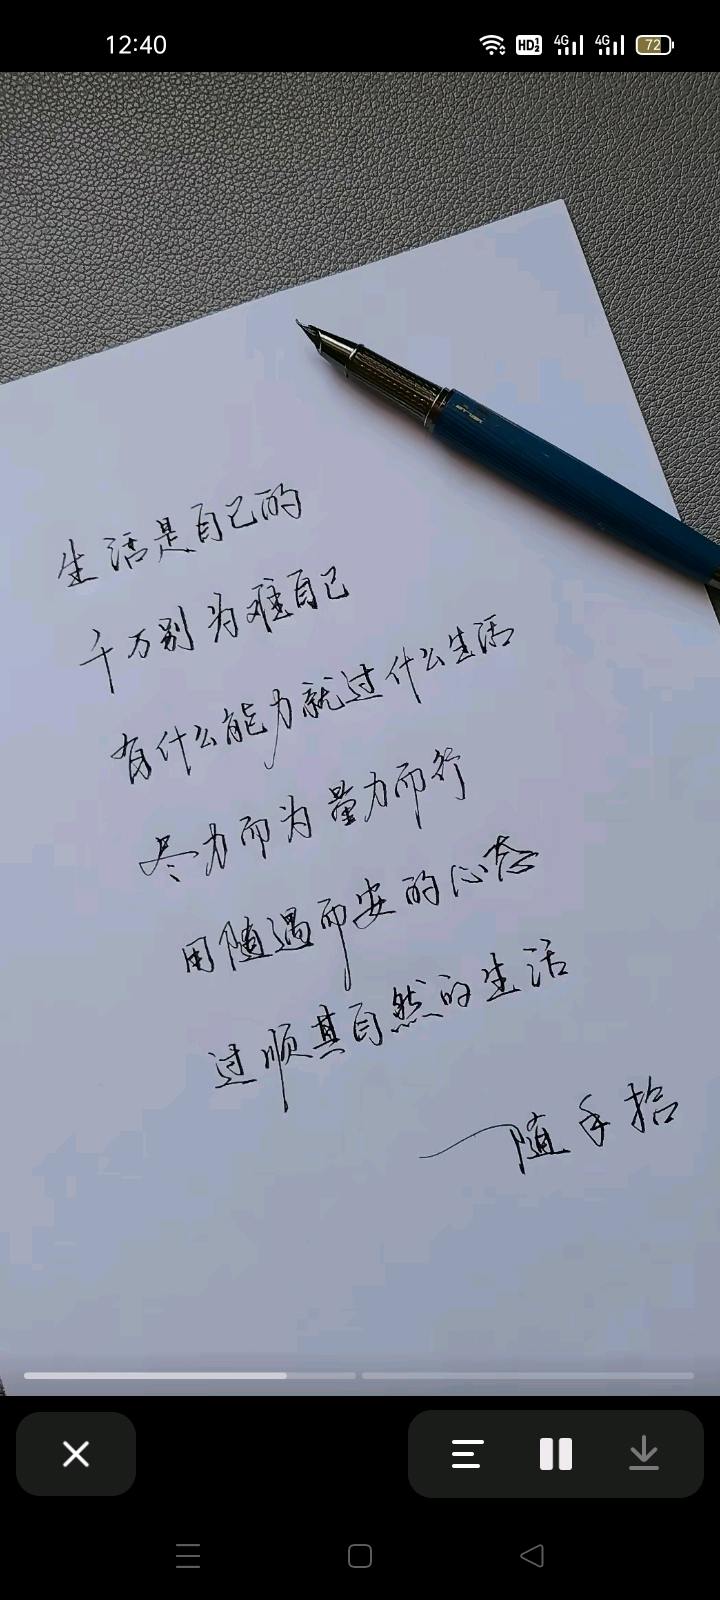 12:40
HD 4G 4G 72
生活是自己的
千万别为难自己
有什么能力就过什么生活
尽力而为 量力而行
用随遇而安的心态
过顺其自然的生活
—随手拾